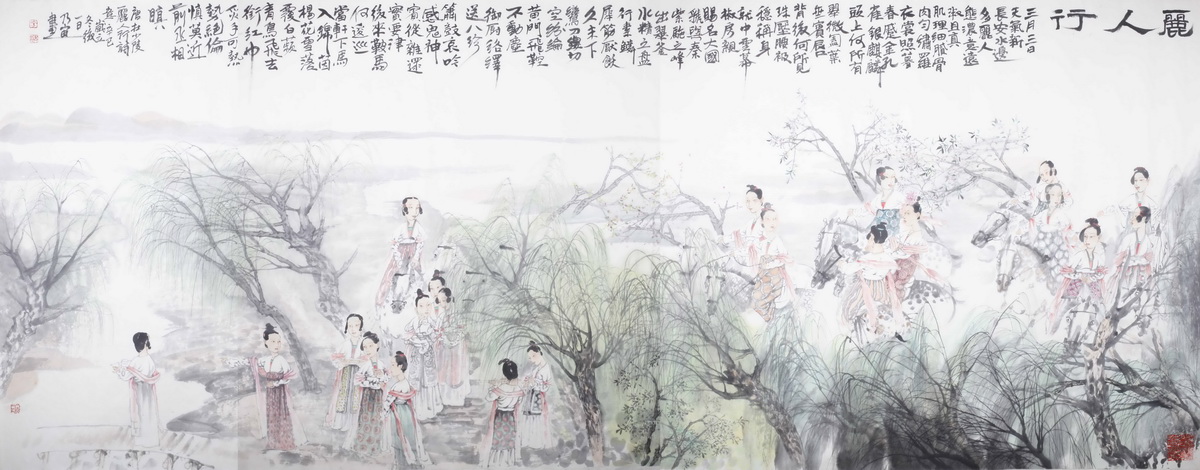 麗人行
三月三日
天氣新
長安水邊
多麗人
態濃意遠
淑且真
肌理細膩骨
肉勻繡羅
衣裳照暮
春蹙金孔
雀銀麒麟
頭上何所有
翠微㔩葉
垂鬢唇
背後何所見
珠壓腰衱
穩稱身
就中雲幕
椒房親
賜名大國
虢與秦
紫駝之峰
出翠釜
水精之盤
行素鱗
犀箸厭飫
久未下
鸞刀縷切
空紛綸
黃門飛鞚
不動塵
御廚絡繹
送八珍
簫鼓哀吟
感鬼神
賓從雜遝
實要津
後來鞍馬
何逡巡
當軒下馬
入錦茵
楊花雪落
覆白蘋
青鳥飛去
銜紅巾
炙手可熱
勢絕倫
慎莫近
前丞相
瞋
唐杜少陵
麗人行詩